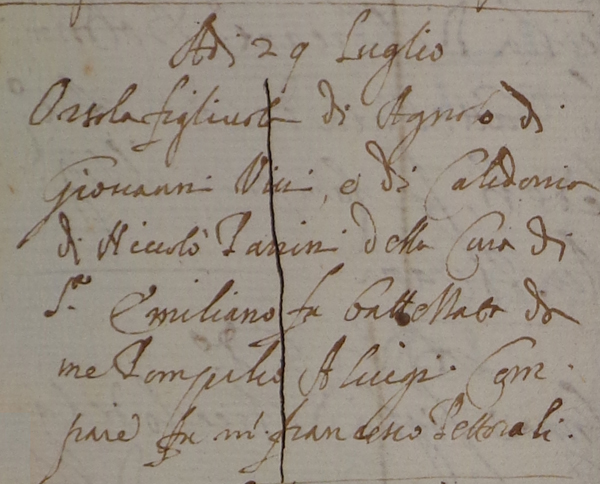 Adi 29 Luglio
Orsola figliuola di Agnolo di
Giovanni Vici, e di Calidonia
di Niccolò Pannini della Cura di
S.to Emiliano fu battezzata da
me Pompilio Aluigi. Com-
pare fu m. francesco Pettorali.